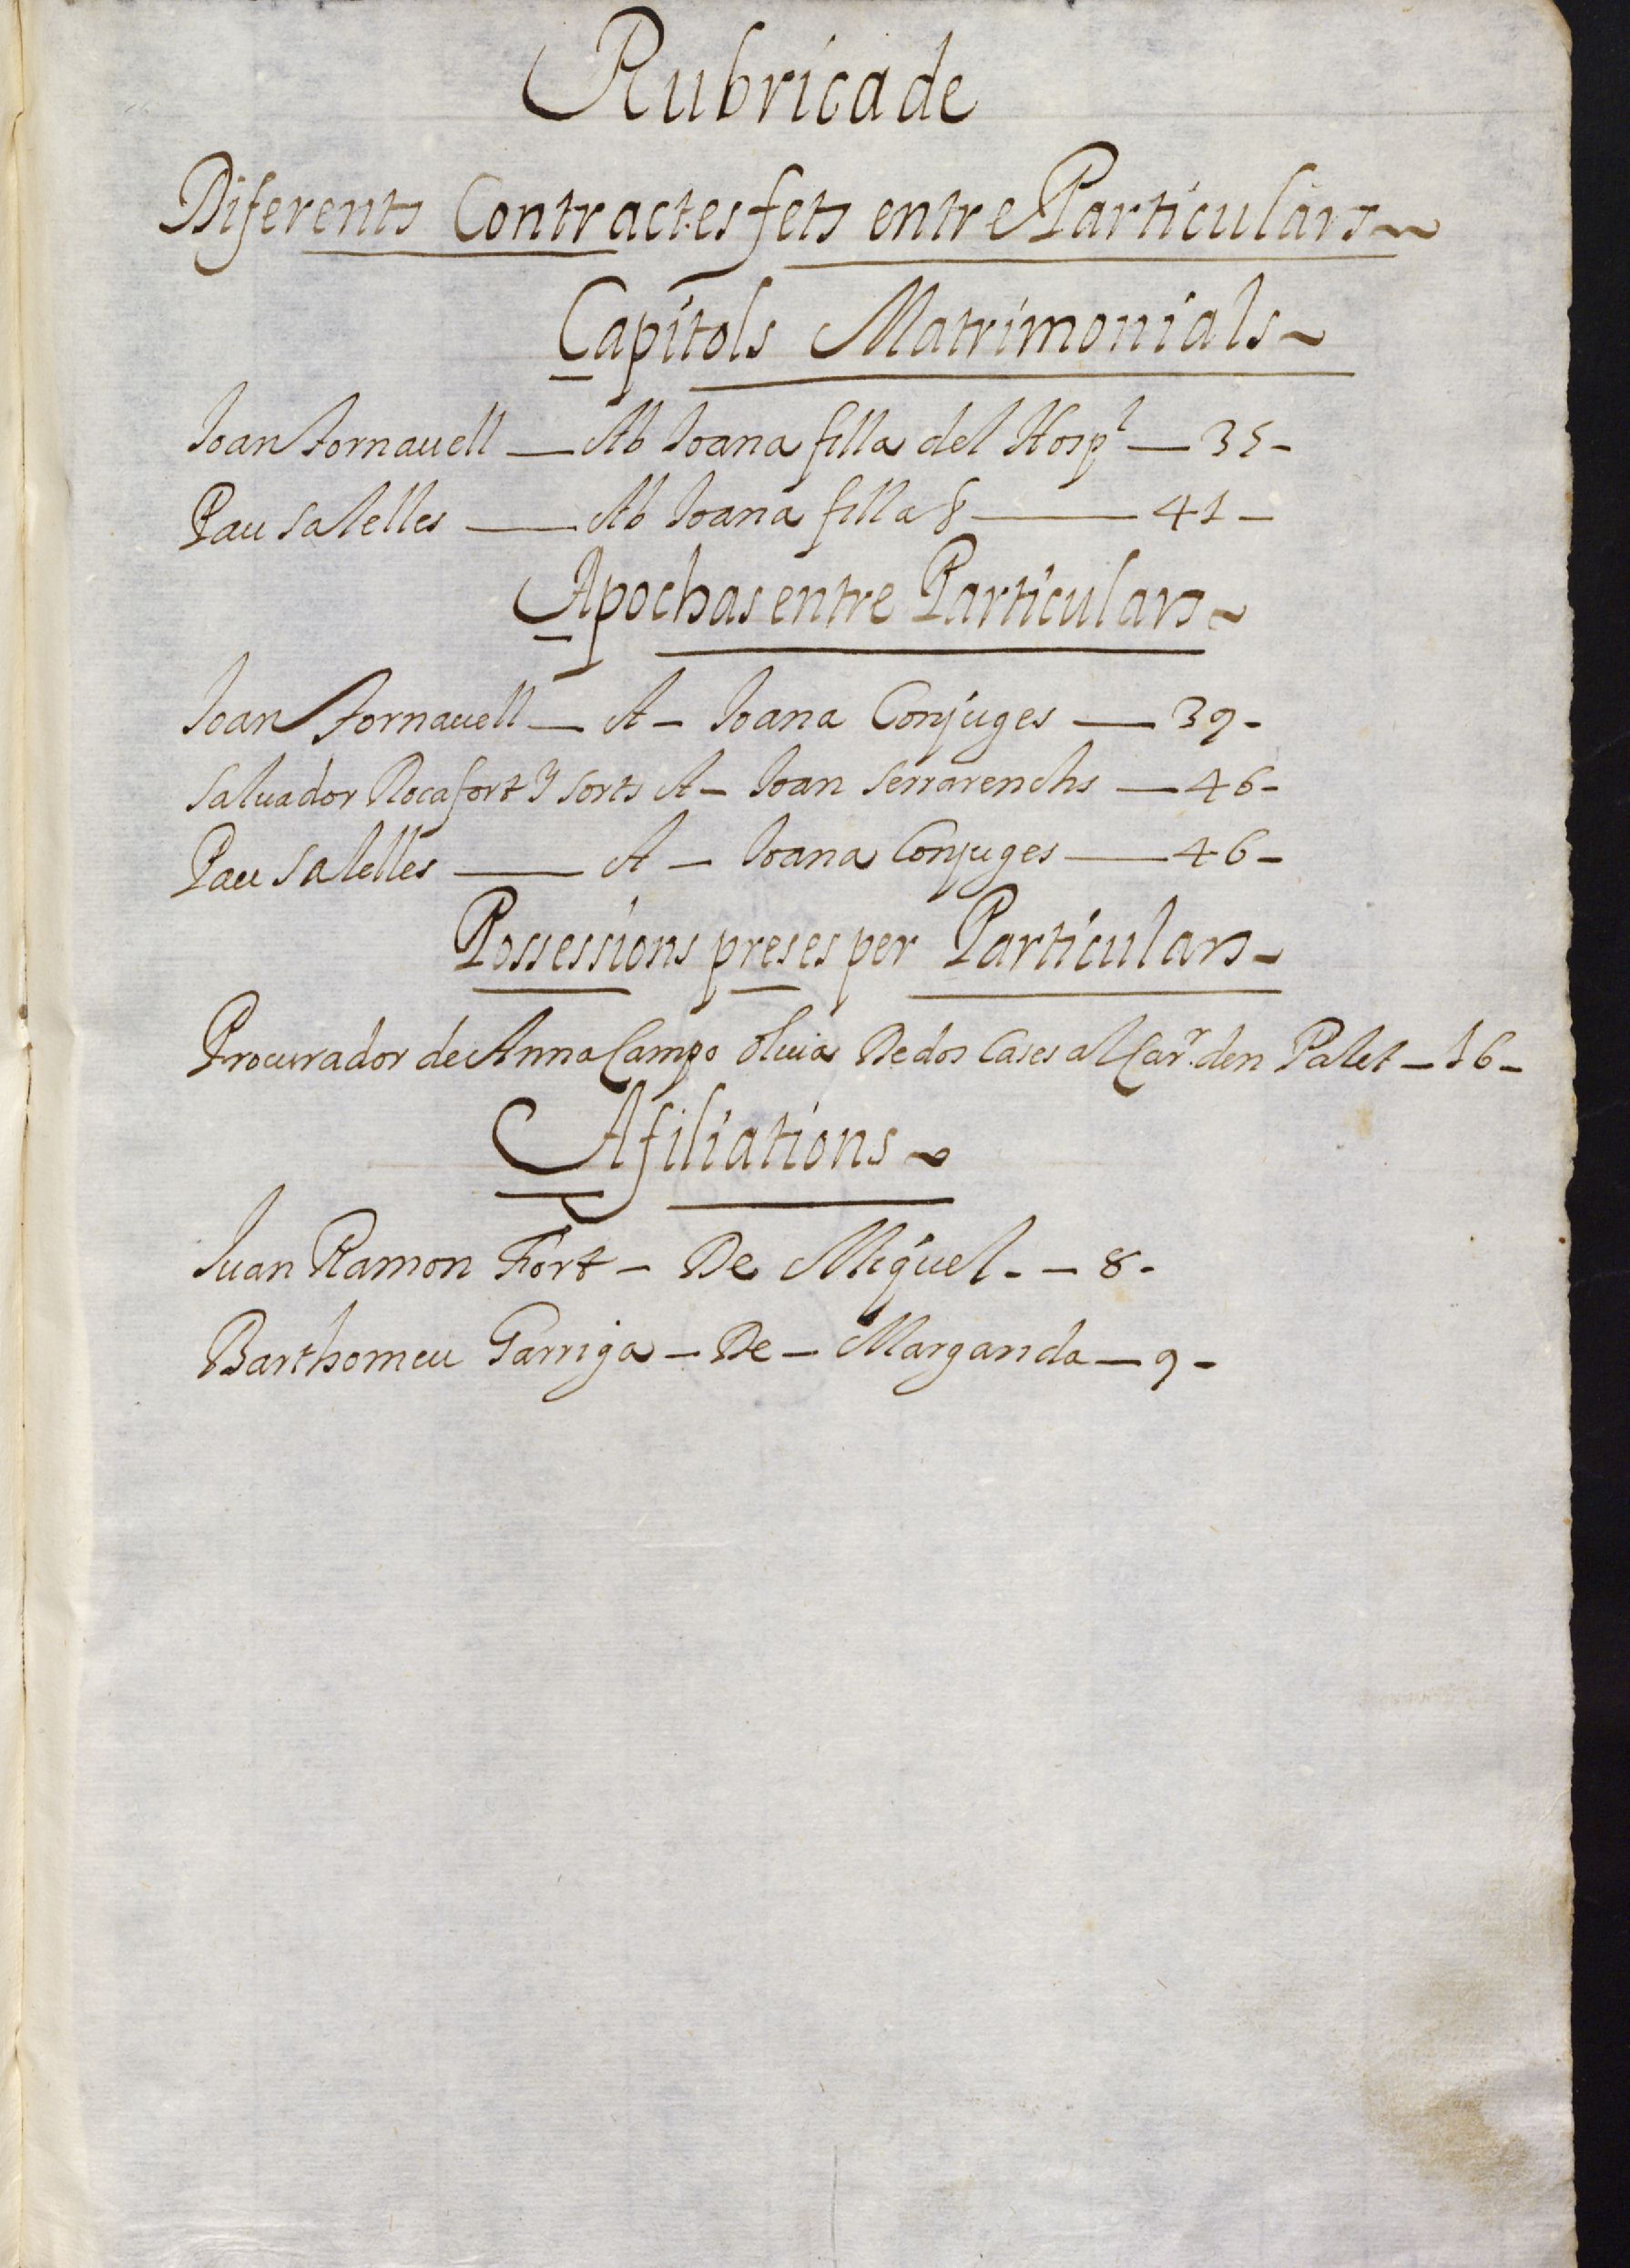 Rubrica de
Diferents Contractes fets entre Particulars
Capitols Matrimonials
Joan Fornavell — Ab Joana filla del Hospl — 35 -
Pau Salelles — Ab Joana filla & — 41 -
Apochas entre Particulars
Joan Fornavell — A — Joana Conjuges — 39 -
Salvador Rocafort y sorts A — Joan Serrarenchs — 46 -
Pau Salelles — A — Joana Conjuges — 46 -
Possessions preses per Particulars
Procurador de Anna Campo Oluia De dos Cases al Carr. den Palet — 16 -
Afiliations
Juan Ramon Fort — De Miquel - — 8 -
Barthomeu Garriga — De — Margarida — 9 -